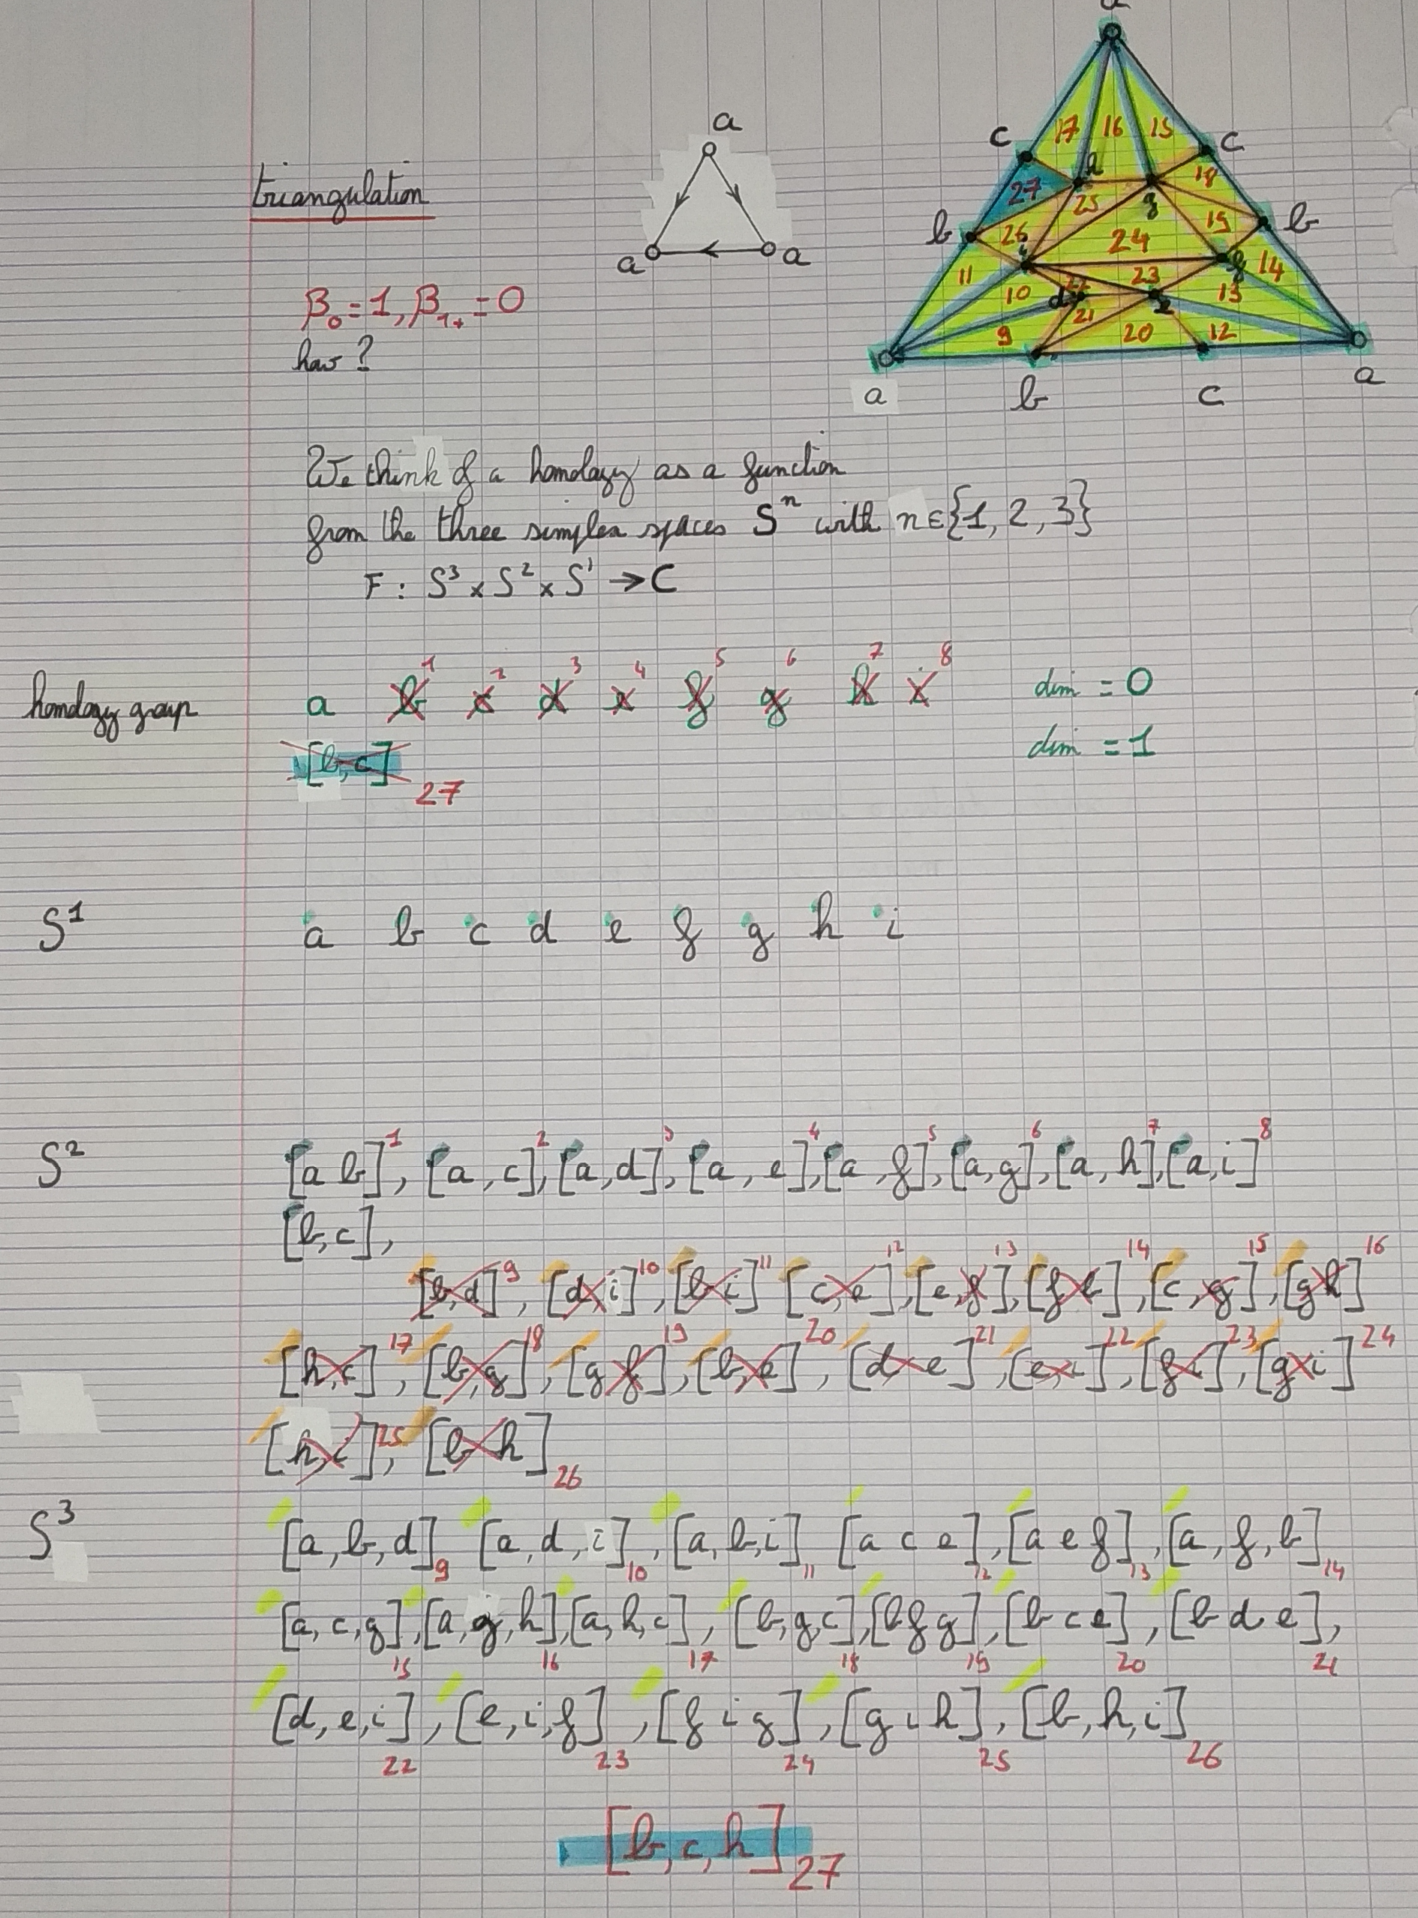 a
a
a
a
triangulation
β₀ = 1, β₁₊ = 0
how?
a
c
c
17 16 15
h
18
27
25
g
b
b
26
15
24
i
f
14
11
23
10
d
22
e
13
21
9
20
12
a
b
c
a
We think of a homology as a function
from the three simplex spaces Sⁿ with n∈{1, 2, 3}
F : S³ × S² × S¹ → C
homology group a b¹ c² d³ e⁴ f⁵ g⁶ h⁷ i⁸ dim = 0
[b,c] 27 dim = 1
S¹ a b c d e f g h i
S² [a b]¹, [a, c]², [a, d]³, [a, e]⁴, [a, f]⁵, [a, g]⁶, [a, h]⁷, [a, i]⁸
[b, c],
[b, d]⁹, [d, i]¹⁰, [b, i]¹¹ [c, e]¹², [e, f]¹³, [f b]¹⁴, [c, g]¹⁵, [g h]¹⁶
[h, c]¹⁷, [b, g]¹⁸, [g f]¹⁹, [b, e]²⁰, [d e]²¹, [e, i]²², [f i]²³, [g i]²⁴
[h, i]²⁵, [b h]₂₆
S³ [a, b, d]₉ [a, d, i]₁₀, [a, b, i]₁₁ [a c e]₁₂, [a e f]₁₃, [a, f, b]₁₄
[a, c, g]₁₅, [a, g, h]₁₆, [a, h, c]₁₇, [b, g, c]₁₈, [b f g]₁₉, [b c e]₂₀, [b d e]₂₁,
[d, e, i]₂₂, [e, i, f]₂₃, [f i g]₂₄, [g i h]₂₅, [b, h, i]₂₆
[b, c, h]₂₇